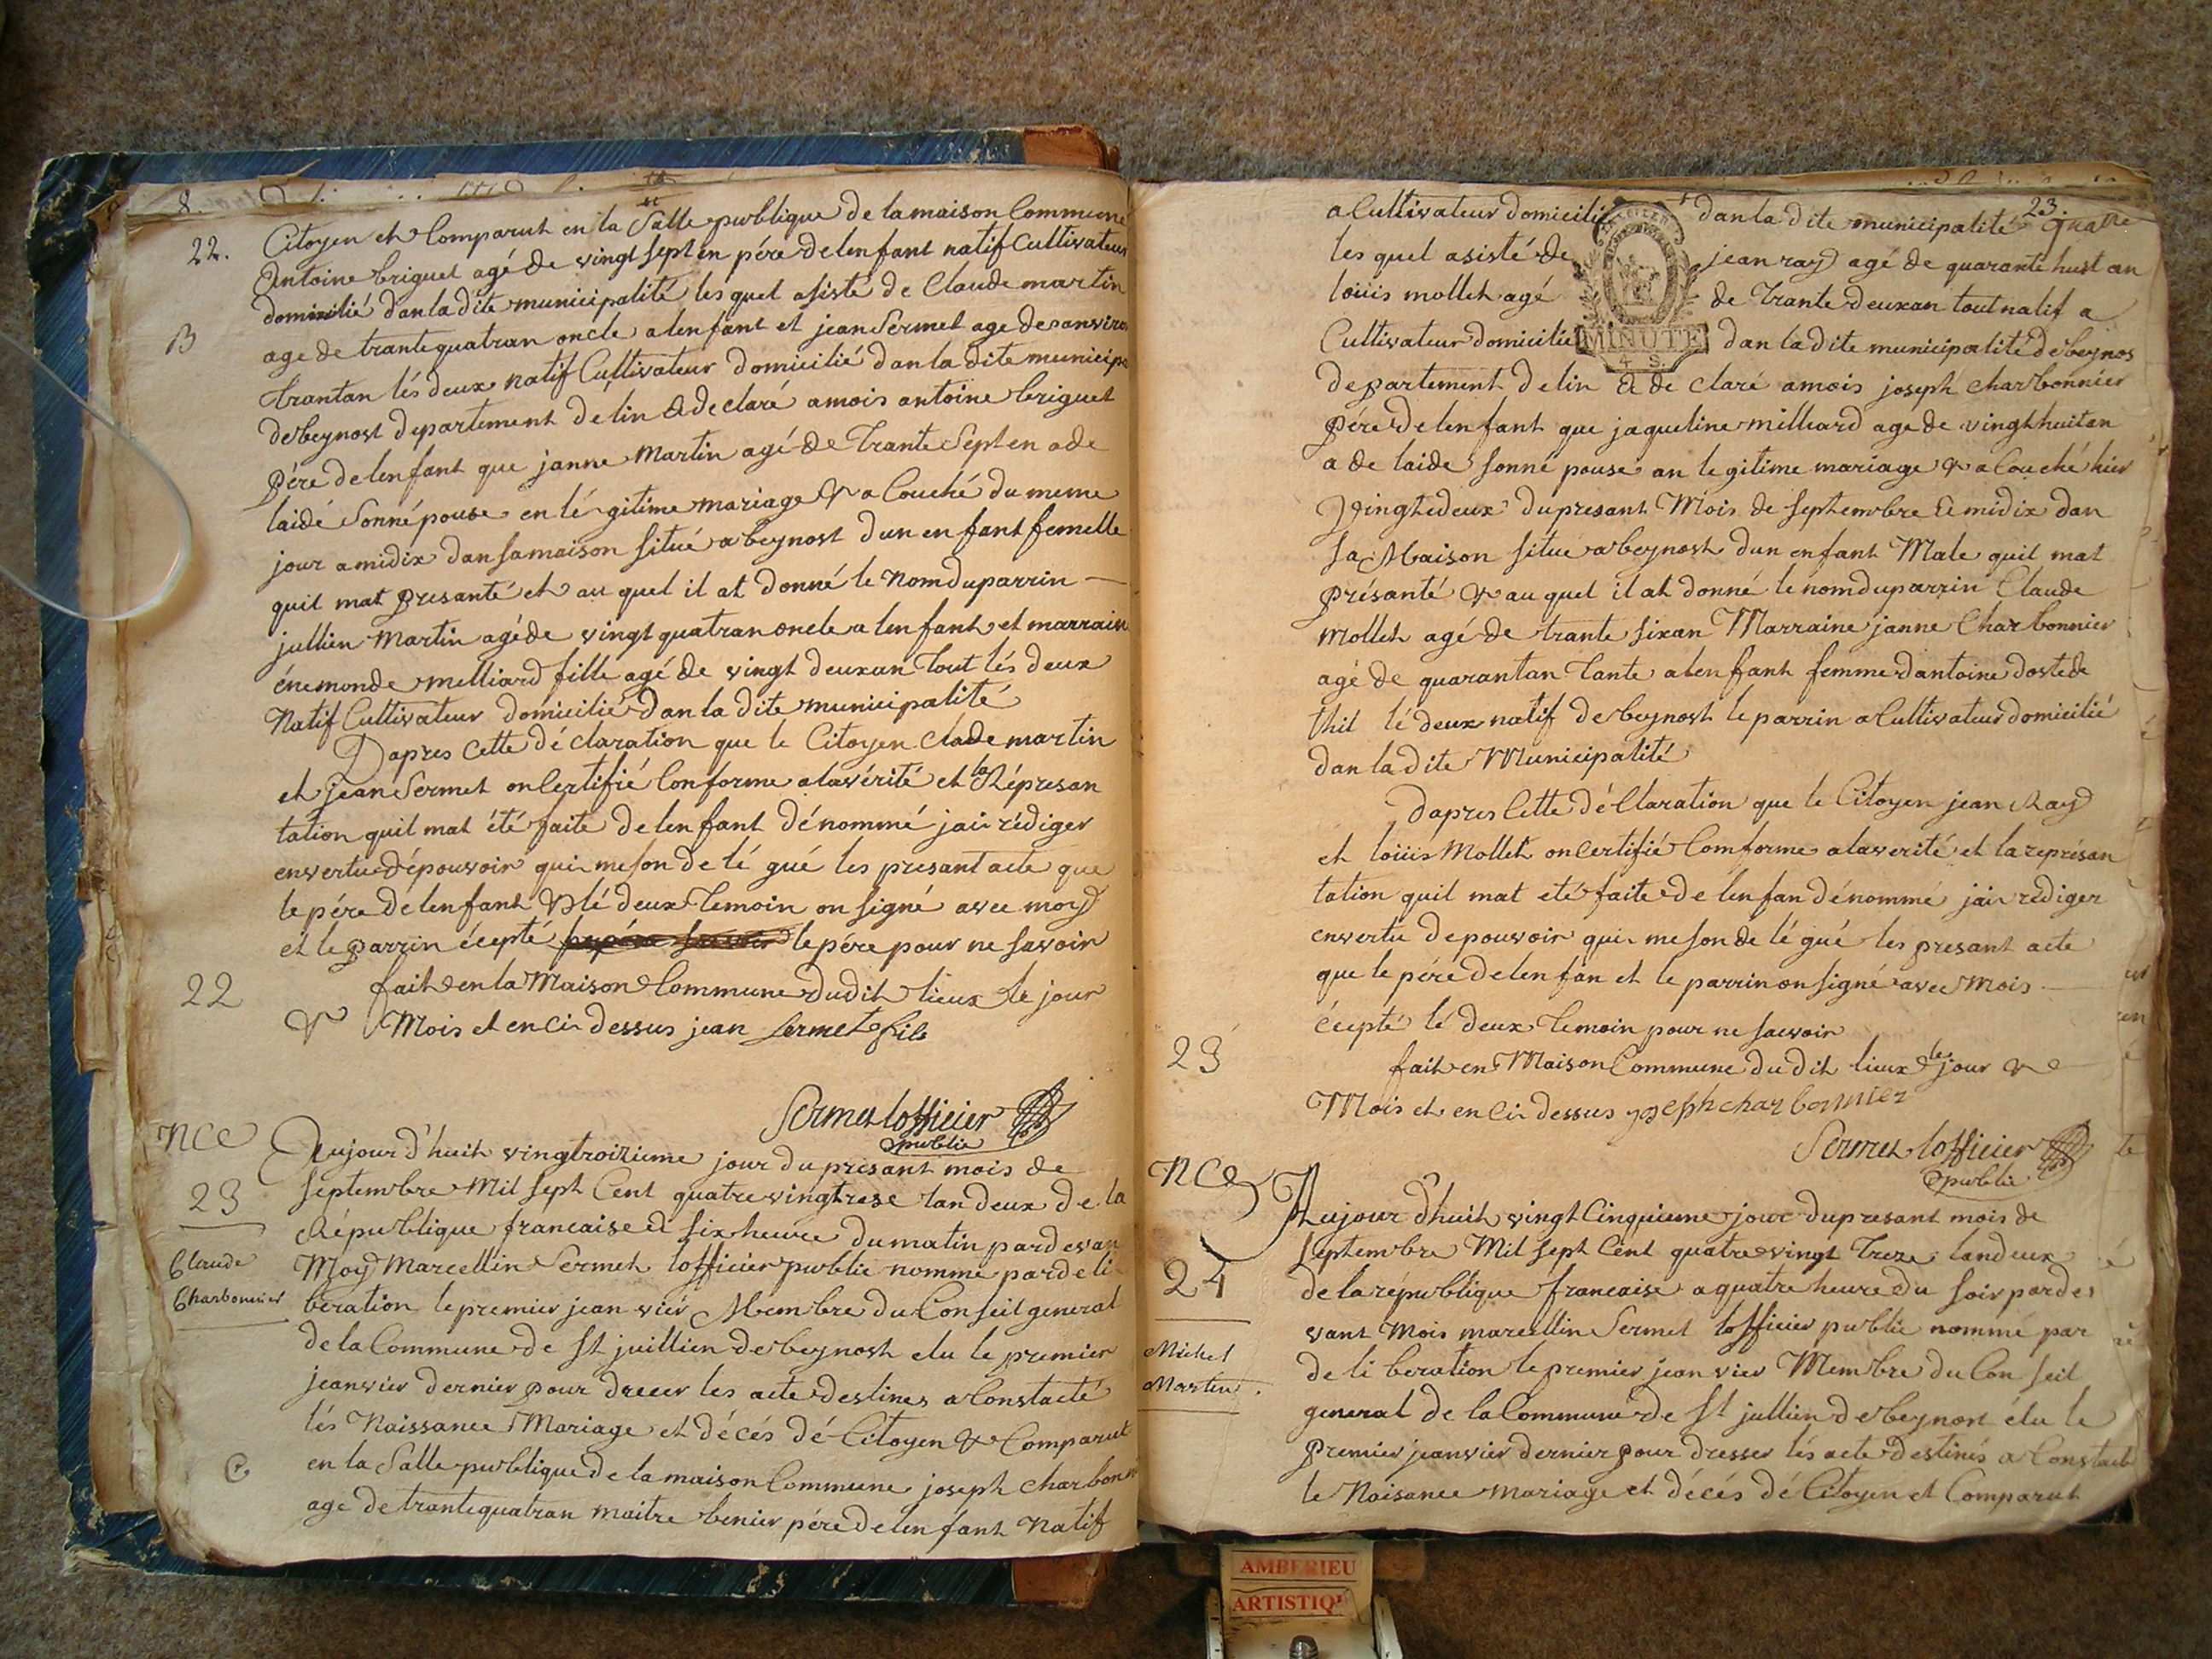 22.
Citoyen et Comparut en la Salle publique de la maison Commune
Antoine briguet agé de vingt sept en pére de lenfant natif Cultivateur
domicilié dan la dite municipalité les quel asisté de Claude martin
B
age de trante quatran oncle a lenfant et jean Sermet age de sanviron
trantan lés deux natif Cultivateur domicilié dan la dite municipa
de beynost departement de lin & de claré a mois antoine briguet
pére de lenfant que janne Martin agé de Trante Sept en a de
laidé sonnépouse en lé gitime mariage & a Couché du meme
jour a midix dan sa maison situé a beynost dun en fant femelle
quil mat presanté et au quel il at donné le Nom du parrin
jullien Martin agé de vingt quatran oncle a lenfant et marrain
énemonde melliard fille agé de vingt deuxan Tout lés deux
Natif Cultivateur domicilié dan la dite municipalité
Dapres Cette dé claration que le Citoyen Clade martin
et jean Sermet on Certifié Conforme a la vérité et la Répresan
tation quil mat été faite de lenfant dénommé jai rédiger
en vertu dépouvoir qui me son de lé gué les presant acte que
le pére de lenfant & lé deux Temoin on signé avec moy
et le parrin écepté le pére pour ne savoir
22
fait en la Maison Commune du dit lieux le jour
& Mois et en Ci dessus jean sermet fils
Sermet lofficier
public
NCe
Aujour d'huit vingtroizieme jour du presant mois de
23
septembre Mil sept Cent quatrevingtrese lan deux de la
République francaise a six heure du matin par devan
Claude
Moy Marcellin Sermet lofficier public nommé par deli
Charbonnier
beration le premier jean vier Membre du Conseil general
de la Commune de St juillien de beynost elu le premier
jeanvier dernier pour dreeer les acte destines a Constacté
lés Naissance Mariage et décés dé Citoyen & Comparut
C
en la Salle publique de la maison Commune joseph charbonn
age de trante quatran maitre benier pére de lenfant Natif
23
a Cultivateur domicilié dan la dite municipalité
les quel asisté de jean ray agé de quarante huit an
loüis mollet agé de Trante deuxan tout natif a
Cultivateur domicilié dan la dite municipalité de beynos
MINUTE
4 S.
departement de lin & de claré a mois joseph charbonnier
pére de lenfant que jaqueline milliard age de vingt huitan
a de laidé sonné pouse an legitime mariage & a Couché hier
Vingtedeux du presant Mois de septembre a midix dan
sa Maison situé a beynost dun enfant Male quil mat
présanté & au quel il at donné le nom du parrin Claude
Mollet agé de trante sixan Marraine janne Charbonnier
agé de quarantan Tante a lenfant femme dantoine dostede
thil lé deux natif de beynost le parrin a Cultivateur domicilié
dan la dite Municipalité
dapres Cette déClaration que le Citoyen jean Ray
et loüis Mollet on Certifié Comforme a la verité et la représan
tation quil mat eté faite de lenfan dénommé jai rediger
en vertu de pouvoir qui me son de lé gué les presant acte
que le pére de lenfan et le parrin on signé avec Mois
écepté lé deux Temoin pour ne saevoir
23
fait en Maison Commune du dit lieux le jour &
Mois et en Ci dessus joseph charbonnier
Sermet lofficier
public
NCe
Aujour d'huit vingt Cinquieme jour du presant mois de
septembre Mil sept Cent quatre vingt Treze lan deux
24
de la république francaise a quatre heure du soir par de
vant Mois marcellin Sermet lofficier public nommé par
Michel
de li beration le premier jean vier Membre du Con seil
Martin
general de la Commune de St jullien de beynost élu le
premier jeanvier dernier pour dresser lés acte destinés a Constacté
le Naisance mariage et décés dé Citoyen et Comparut
AMBERIEU
ARTISTIQ